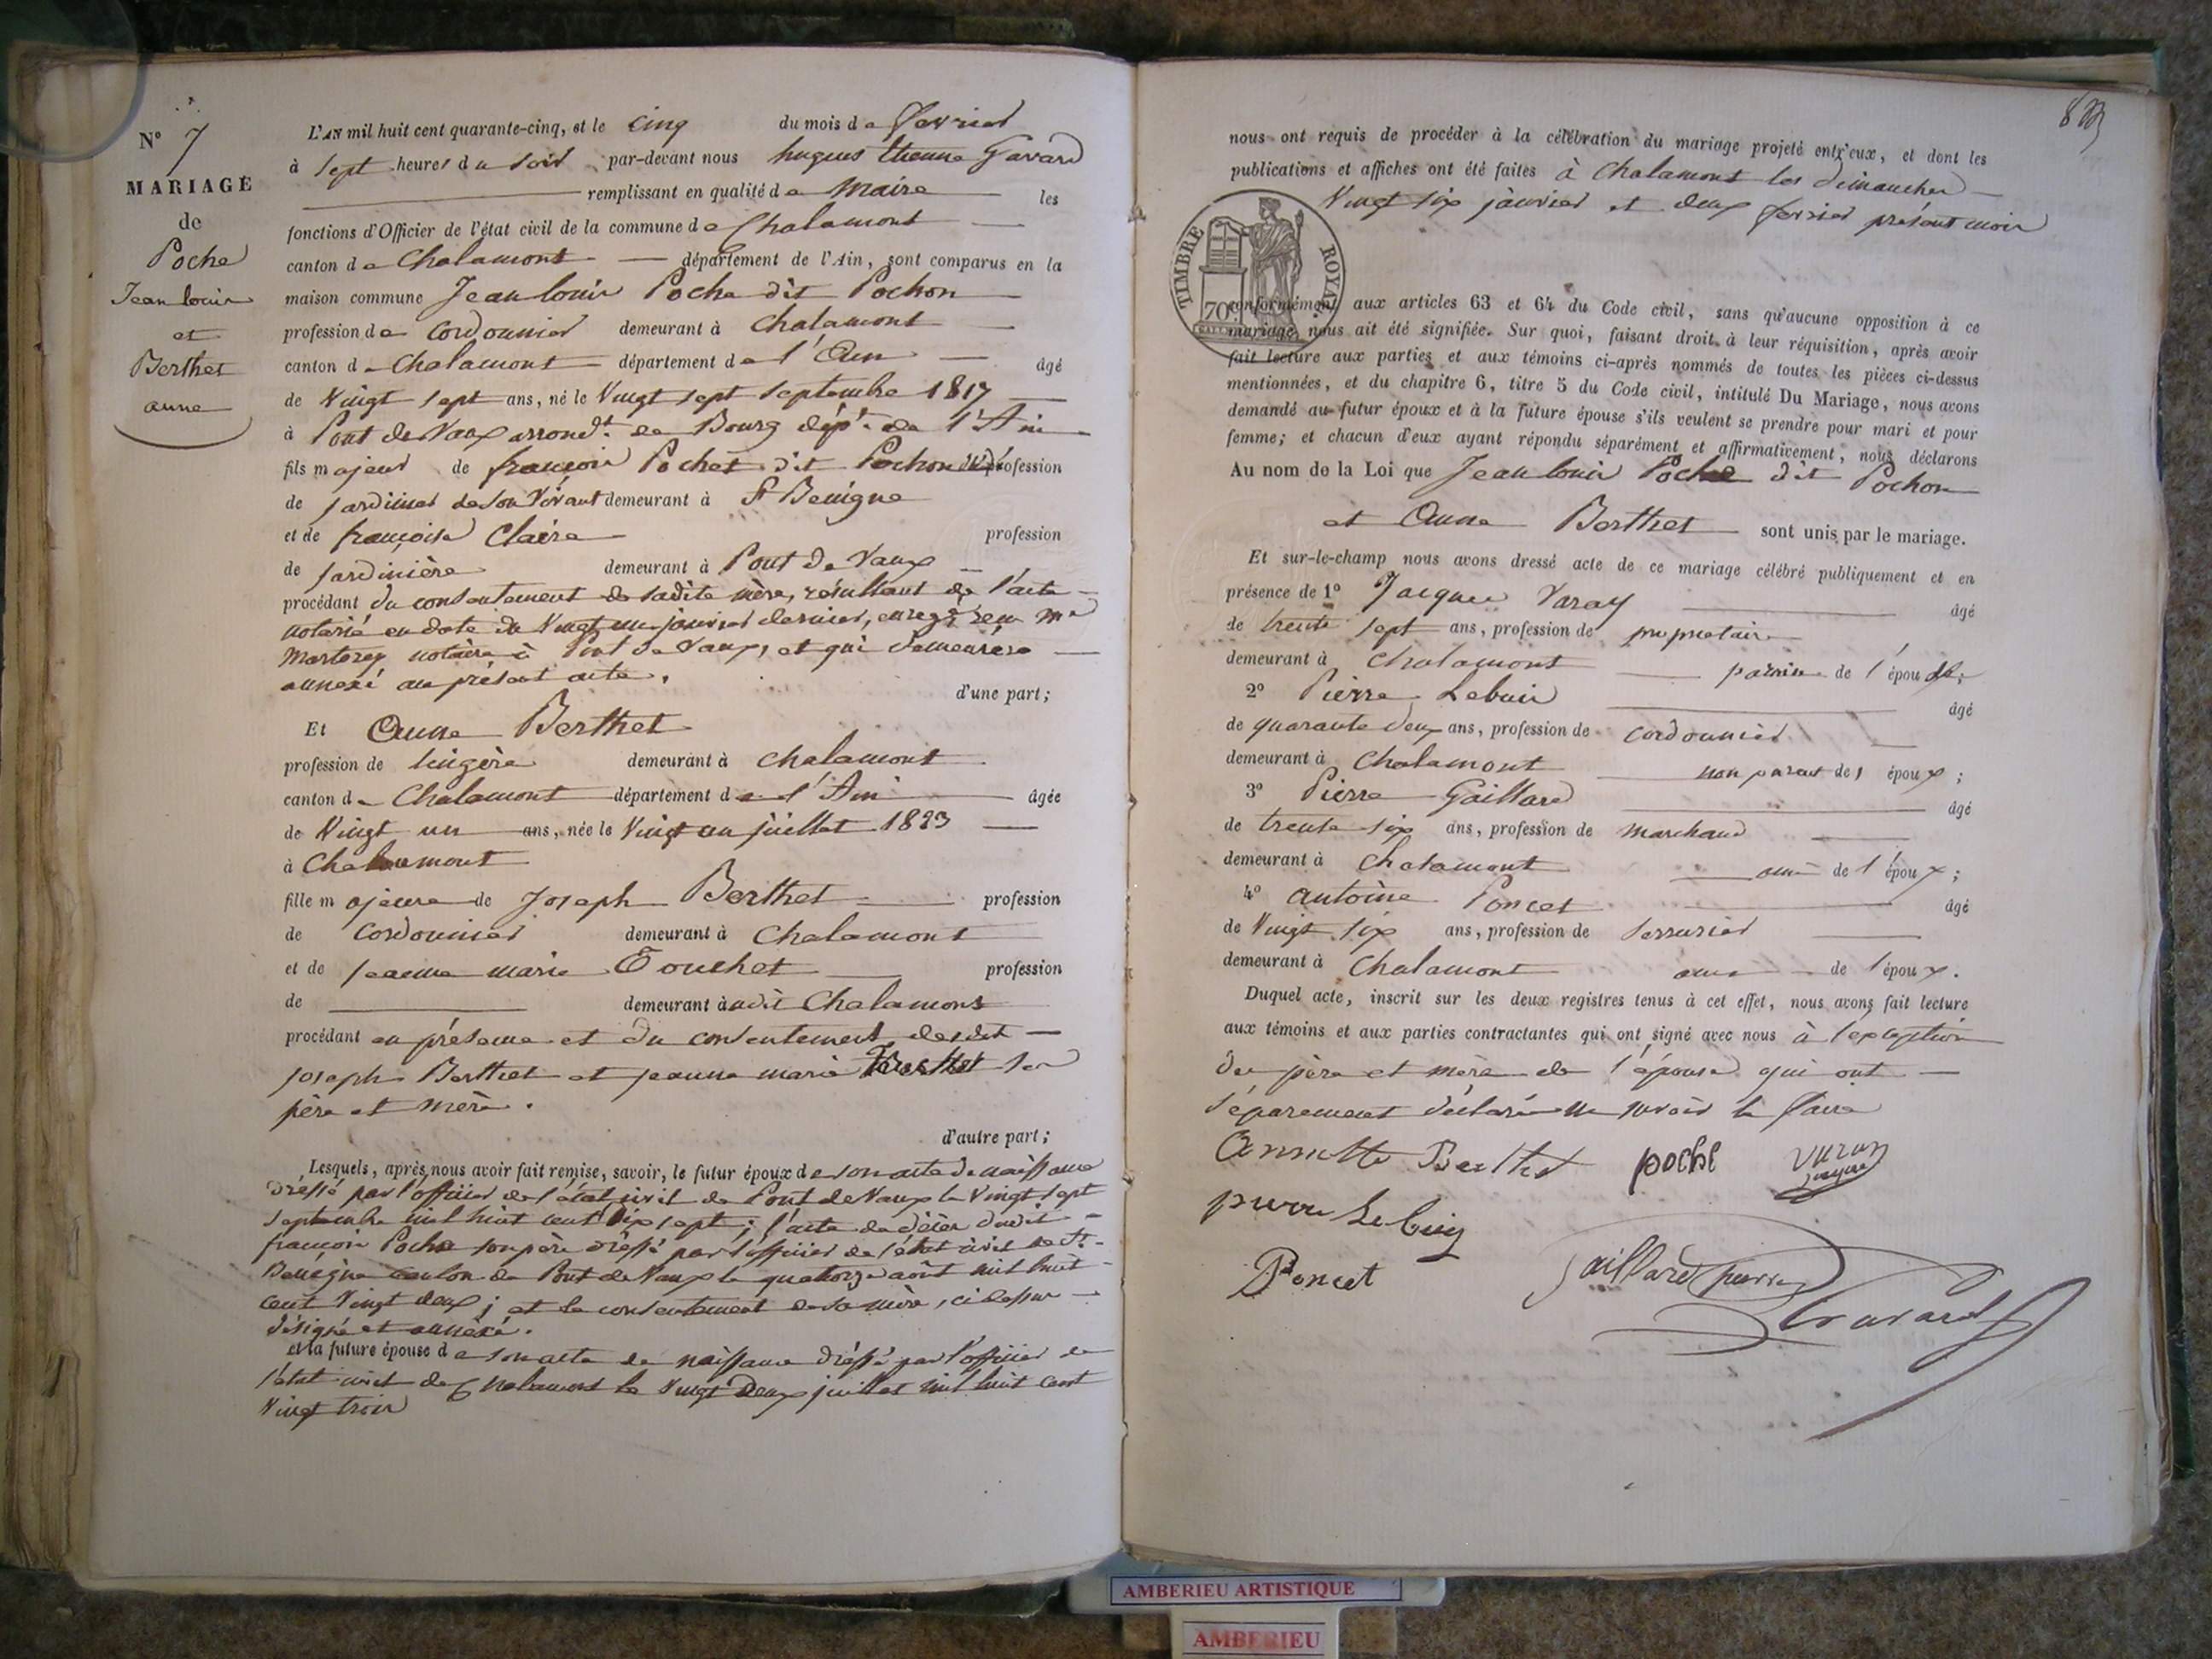 N° 7
MARIAGE
de
Poche
Jean louis
et
Berthet
anne
L'AN mil huit cent quarante-cinq, et le cinq du mois de fevrier
à sept heures du soir par-devant nous hugues Etienne Gavard
remplissant en qualité de Maire les
fonctions d'Officier de l'état civil de la commune de Chalamont
canton de Chalamont département de l'Ain, sont comparus en la
maison commune Jean louis Poche dit Pochon
profession de cordonnier demeurant à Chalamont
canton de Chalamont département de l'Ain âgé
de Vingt sept ans, né le Vingt sept septembre 1817
à Pont de Vaux arrondt. de Bourg dépt. de l'Ain
fils majeur de françois Pochet dit Pochon profession
de jardinier de son Vivant demeurant à St Benigne
et de françoise Claire profession
de jardinière demeurant à Pont de Vaux
procédant du consentement de sadite mère, résultant de l'acte
notarié en date du Vingt un janvier dernier, enregé. reçu Me
Martorey notaire à Pont de Vaux, et qui demeurera
annexé au présent acte.
d'une part;
Et Anne Berthet
profession de lingère demeurant à Chalamont
canton de Chalamont département de l'Ain âgée
de Vingt un ans, née le Vingt un juillet 1823
à Chalamont
fille majeure de Joseph Berthet profession
de cordonnier demeurant à Chalamont
et de jeanne marie Touchet profession
de demeurant audit Chalamont
procédant en présence et du consentement desdit
joseph Berthet et jeanne marie ses
père et mère.
d'autre part;
Lesquels, après nous avoir fait remise, savoir, le futur époux de son acte de naissance
dréssé par l'officier de l'état civil de Pont de Vaux le Vingt sept
septembre mil huit cent dix sept; l'acte de décès dudit
françois Poche son père dréssé par l'officier de l'état civil de St.
Benigne canton de Pont de Vaux le quatorze août mil huit
cent Vingt deux; et le consentement de sa mère, ci dessus
désigné et annéxé.
et la future épouse de son acte de naissance dréssé par l'officier de
l'état civil de Chalamont le Vingt deux juillet mil huit cent
Vingt trois
nous ont requis de procéder à la célébration du mariage projeté entr'eux, et dont les
publications et affiches ont été faites à Chalamont les dimanches
Vingt six janvier et deux fevrier présent mois
TIMBRE ROYAL
70c
conformément aux articles 63 et 64 du Code civil, sans qu'aucune opposition à ce
mariage nous ait été signifiée. Sur quoi, faisant droit à leur réquisition, après avoir
fait lecture aux parties et aux témoins ci-après nommés de toutes les pièces ci-dessus
mentionnées, et du chapitre 6, titre 5 du Code civil, intitulé Du Mariage, nous avons
demandé au futur époux et à la future épouse s'ils veulent se prendre pour mari et pour
femme; et chacun d'eux ayant répondu séparément et affirmativement, nous déclarons
Au nom de la Loi que Jean louis Poche dit Pochon
et Anne Berthet sont unis par le mariage.
Et sur-le-champ nous avons dressé acte de ce mariage célébré publiquement et en
présence de 1° Jacques Varay âgé
de trente sept ans, profession de propriétaire
demeurant à Chalamont de l'épouse;
2° Pierre Lebuis âgé
de quarante deux ans, profession de cordonnier
demeurant à Chalamont non parent des époux;
3° Pierre Gaillard âgé
de trente six ans, profession de marchand
demeurant à Chalamont ami de l'époux;
4° antoine Poncet âgé
de Vingt six ans, profession de serrurier
demeurant à Chalamont ami de l'époux.
Duquel acte, inscrit sur les deux registres tenus à cet effet, nous avons fait lecture
aux témoins et aux parties contractantes qui ont signé avec nous à l'exception
des père et mère de l'épouse qui ont
séparement déclaré ne savoir le faire
Annette Berthet poche
pierre
Poncet Gaillard pierre
Gavard
AMBERIEU ARTISTIQUE
AMBERIEU